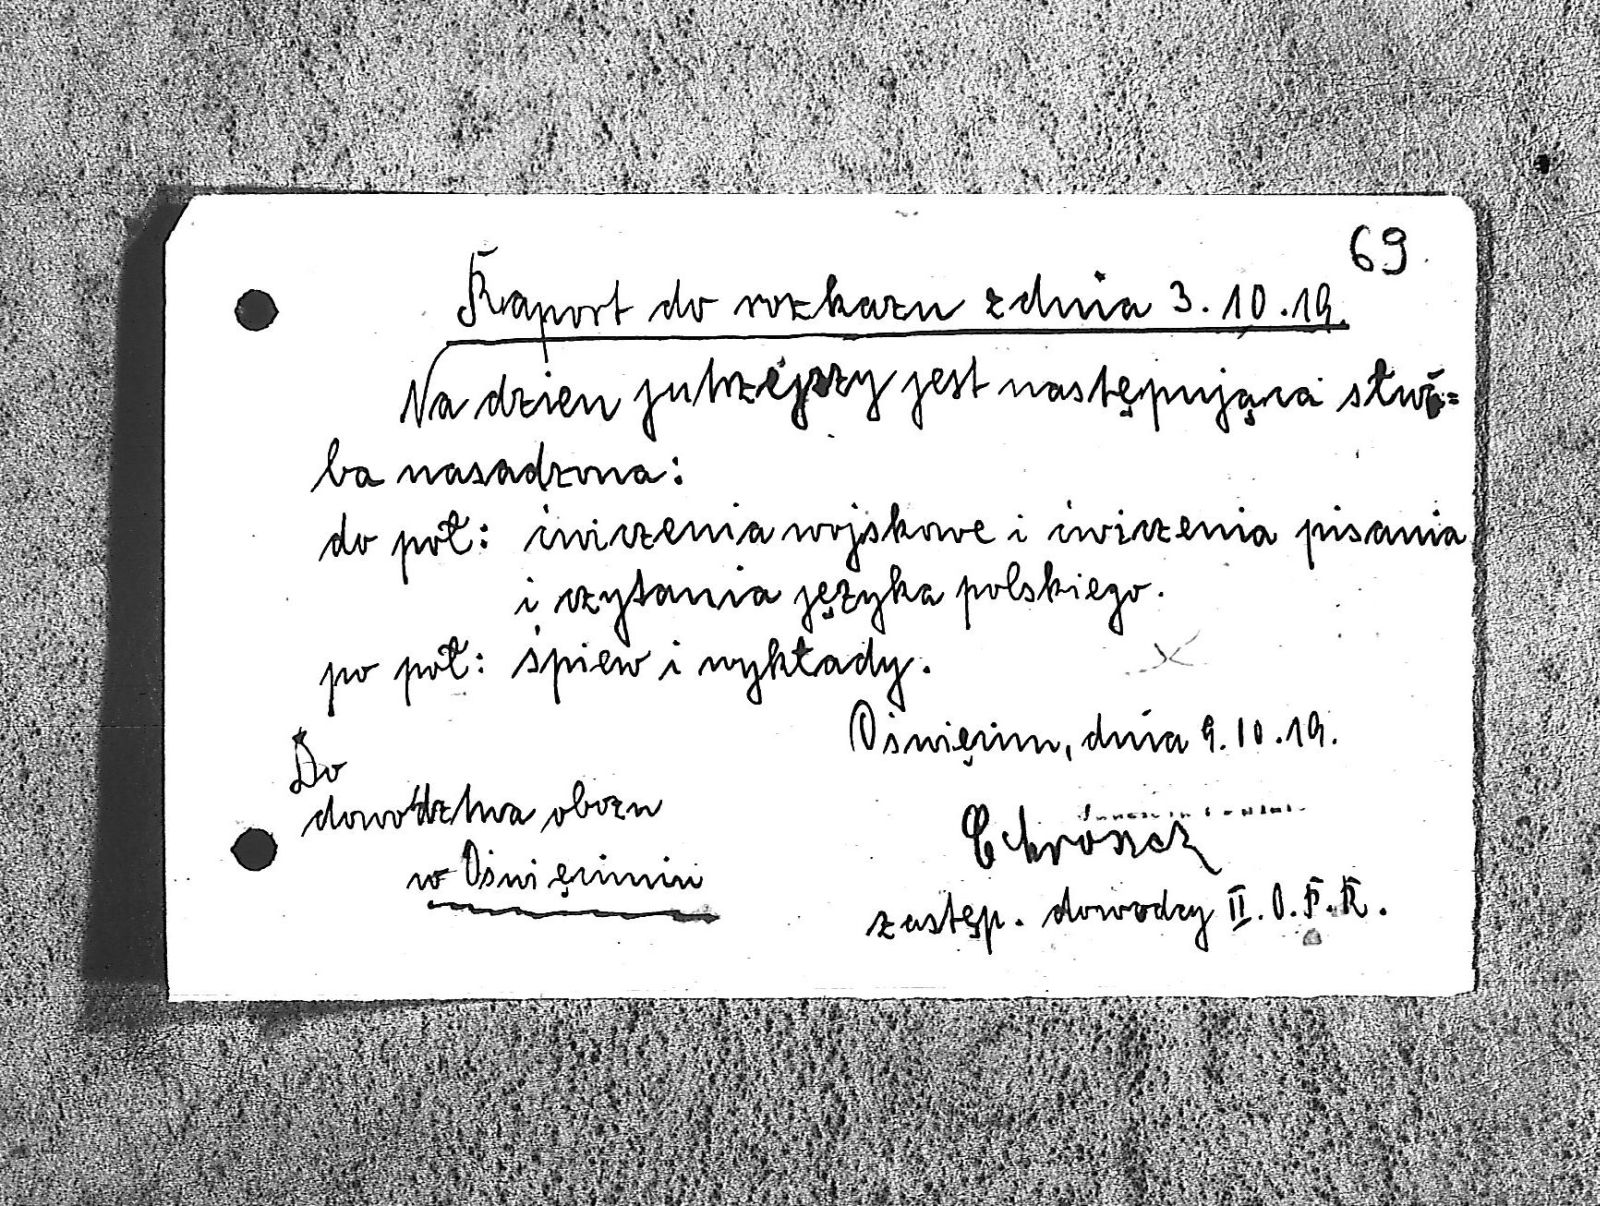 69
Raport do rozkazu z dnia 3.10.19.
Na dzien jutrzejszy jest następująca służ=
ba nasadzona:
do poł: ćwiczenia wojskowe i ćwiczenia pisania
i czytania języka polskiego.
po poł: śpiew i wykłady.
Oświęcim, dnia 9.10.19.
Do
dowództwa obozu
w Oświęcimiu
Chroszcz
zastęp. dowodzy II.O.P.K.